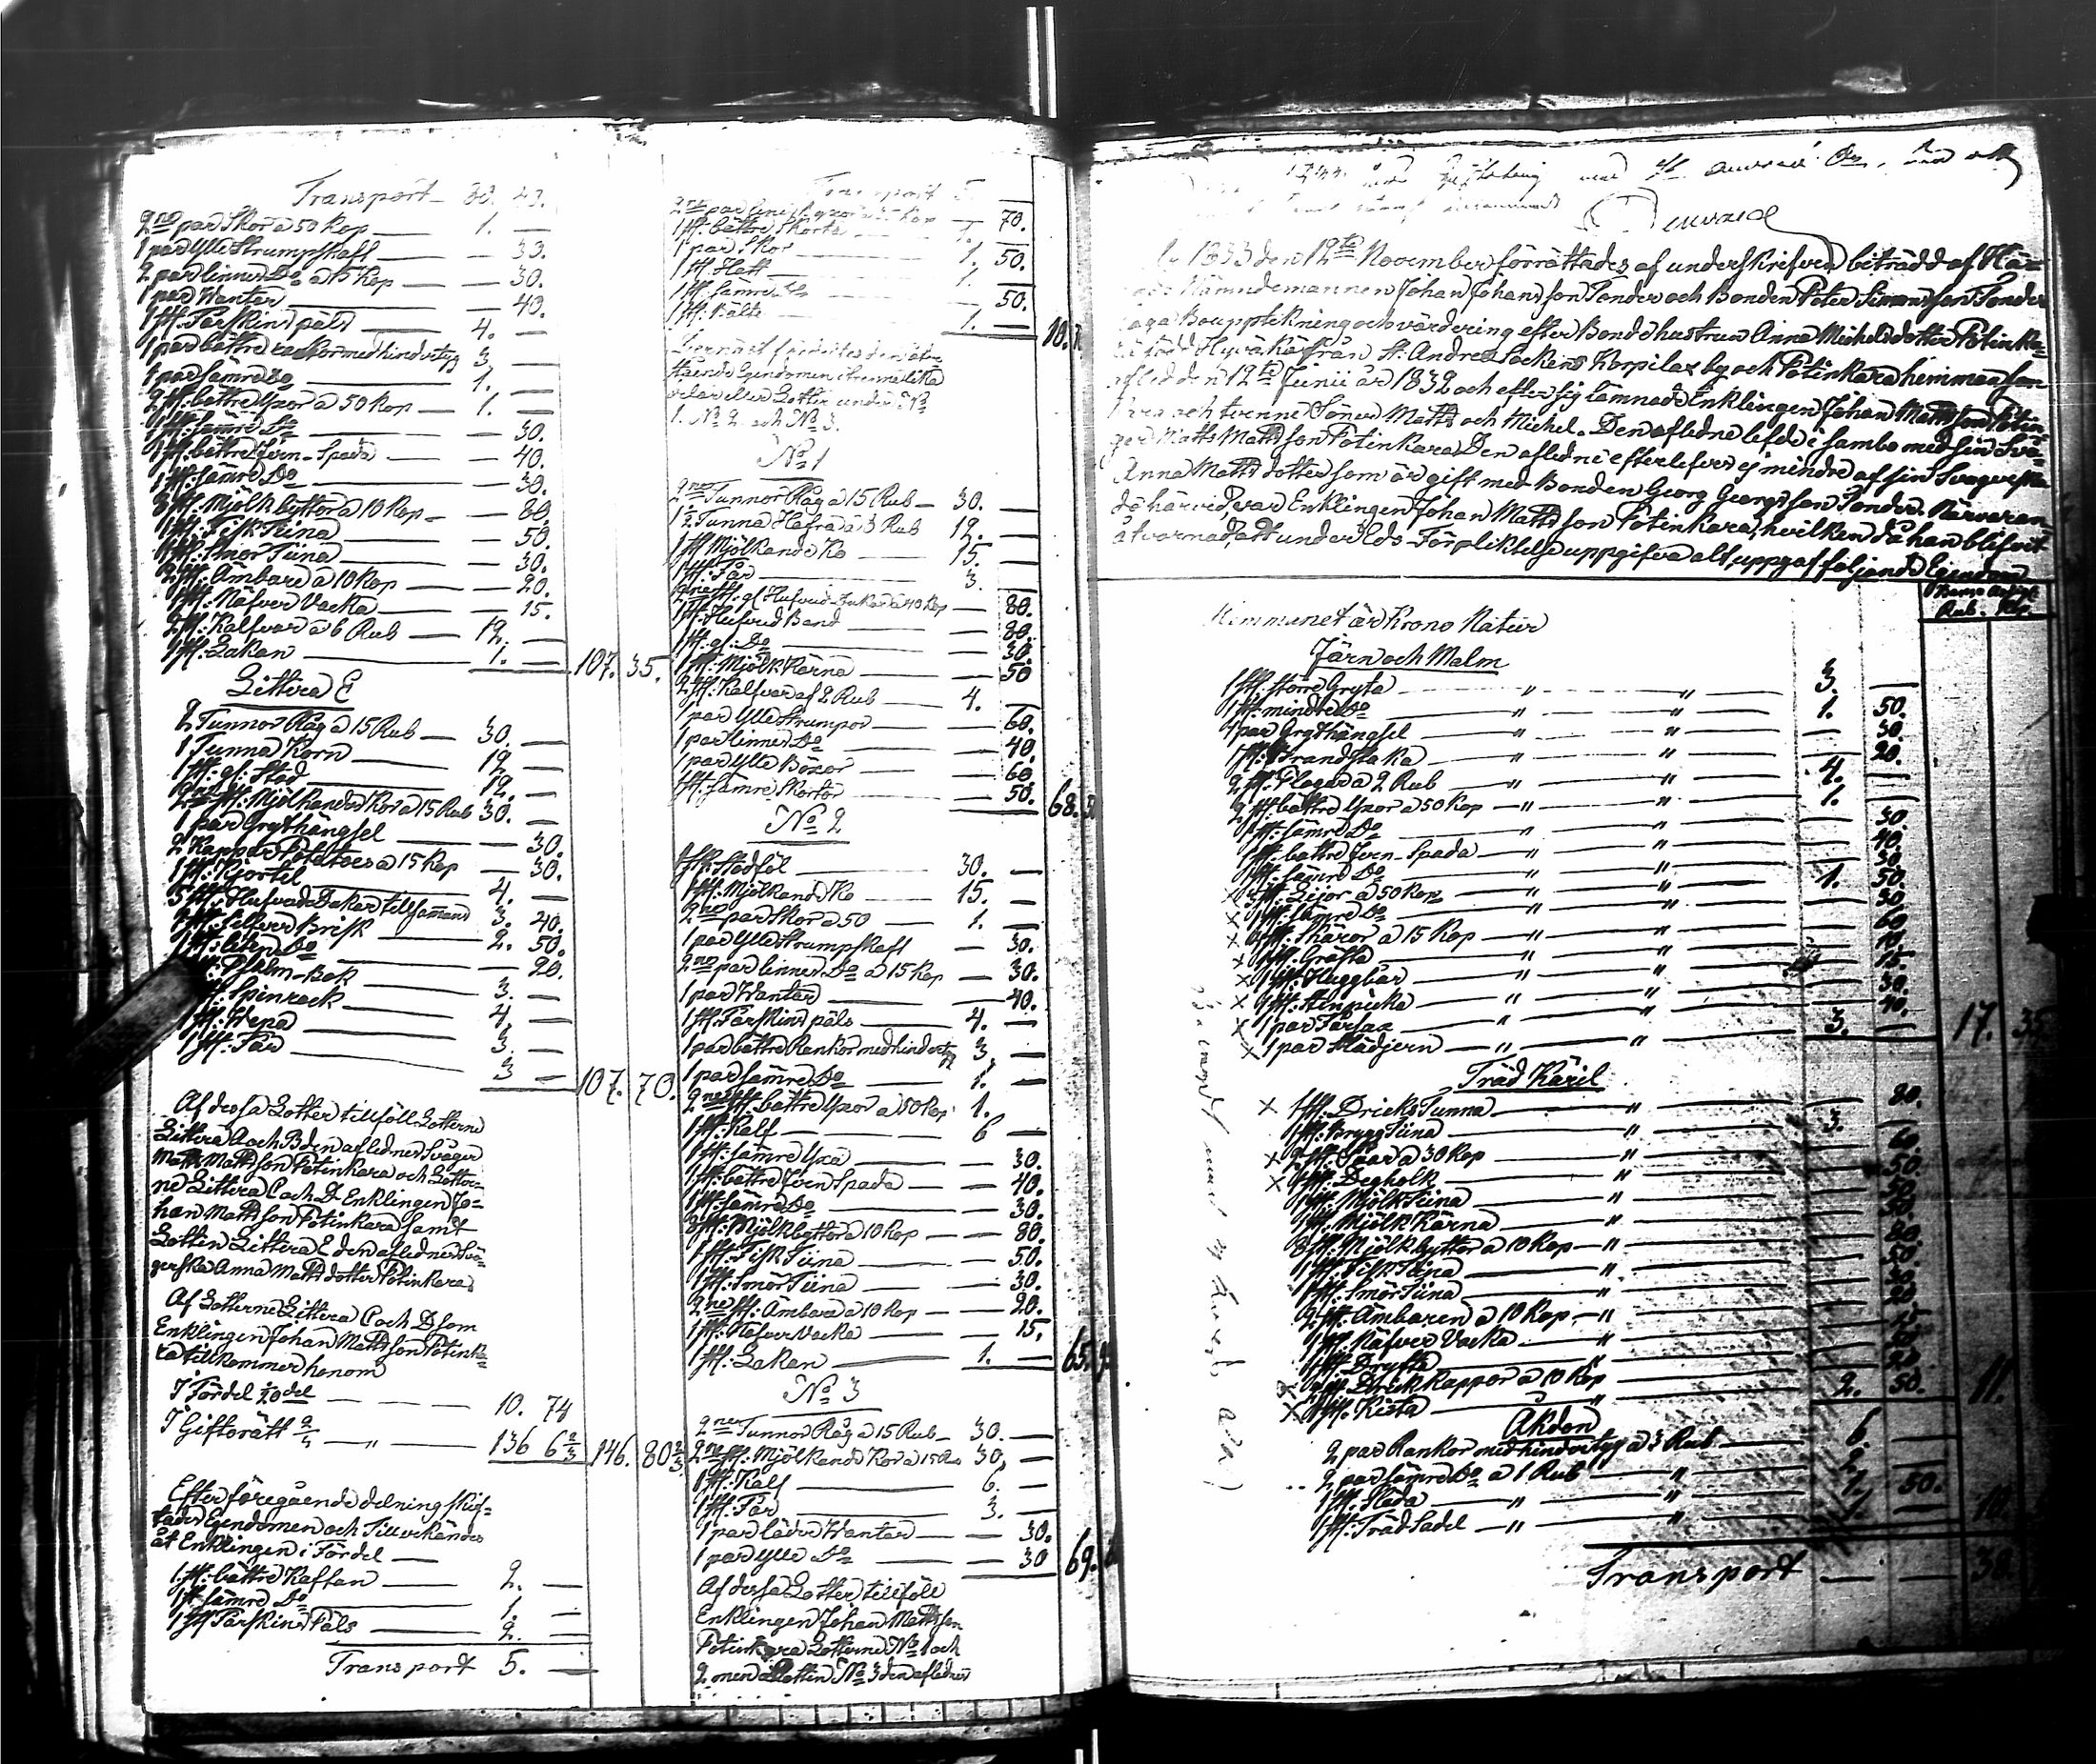 Transport 30. 43.
2ne par Skor a 50 Kop — 1. —
1 par Ylle Strumpskaft — — 33.
2 par linne Do a 15 Kop — — 30.
1 par Wantar — — 40.
1 st: Fårskins päls — 4. —
1 par bättre rankor med hindertyg 3 —
1 par sämre Do — 1. —
2 st: bättre Yxor a 50 Kop — 1. —
1 st: sämre Do — — 30.
1 st: bättre Jern-Spada — — 40.
1 st: sämre Do — — 30.
8 st. Mjölkbyttor a 10 Kop — — 80.
1 st: Fisk Tiina — — 50.
1 st: Smör Tiina — — 30.
2 st: Ämbare a 10 Kop — — 20.
1 st: Näfver Vacka — — 15.
2 st: Kalfvar a 6 Rub — 12. —
1 st: Lakan — 1. — 107. 35.
Littera E
2 Tunnor Råg a 15 Rub — 30. —
1 Tunna Korn — 12. —
1 st: gl: Stod — 12. —
2ne st: Mjölkande Kor a 15 Rub 30. —
1 par Grythängsel — — 30.
2 Kappar Potatoes a 15 Kop — 30.
1 st: Kjortel — 4. —
5 st: Hufvud Dukar tillsamans 3. 40.
1 st: Silfver Brisk — 2. 50.
1 st: liten Do — — 20.
Psalm-Bok — 3. —
st: Spinrock — 4. —
1 st: Wepa — 3. —
1 st: Får — 3 — 107. 70.
Af dessa Lotter tillföll Lotterne
Littera A och B den aflednes Svåger
Matts Mattsson Potinkara och Lotter-
ne Littera C och D Enklingen Jo-
han Mattsson Potinkara samt
Lotten Littera E den aflednes Svä-
gerska Anna Mattsdotter Potinkara
Af Lotterne Littera C och D som
Enklingen Johan Mattsson Potinka-
ra tillkommer honom
I Fördel 1/20 del — — 10. 74
I Giftorätt 2/3 — " — 136 6 2/3 146. 80 2/3
Efter föregående delning skif-
tades Egendomen och Tillerkändes
åt Enklingen i Fördel —
1 st: bättre Kaftan — 2. —
1 st sämre Do — 1. —
1 st Fårskins Päls — 2. —
Transport 5. —
Transport 5. —
— 70.
1 st: bättre Skorta — 1. —
1 par Skor — 1. 50.
1 st. Hatt — 1. —
1 st. sämre Do — — 50.
1 st: Bälte — 1. — 10.
Dernäst fördeltes den åter
stående Egendomen i trenne lika
delar eller Lotter under No
1. No 2. och No 3.
No 1
2ne Tunnor Råg a 15 Rub — 30. —
1 1/2 Tunna Hafra a 8 Rub 12. —
1 st Mjölkande Ko — 15. —
1 st: Får — 3. —
2ne st. gl. Hufvud Dukar a 40 Kop — 80.
1 st: Hufvud Band — — 80.
1 st: gl: Do — — 30.
1 st: Mjölk Kärna — — 50
2 st: Kalfvar af 2 Rub — 4. —
1 par Ylle Strumpor — — 60.
1 par linne Do — — 40.
1 par Ylle Böxor — — 60.
1 st: sämre Skortor — — 50. 68.
No 2
1 st: Stodföl — 30. —
1 st: Mjölkande Ko — 15. —
2ne par Skor a 50 — 1. —
1 par Ylle Strumpskaft — — 30.
2ne par linne Do a 15 Kop — 30.
1 par Wantar — — 40.
1 st: Fårskins päls — 4. —
1 par bättre Rankor med hindertyg 3. —
1 par sämre Do — 1. —
2ne st: bättre Yxor a 50 Kop 1. —
1 st: Kalf — 6 —
1 st: sämre Yxa — — 30.
1 st: bättre Jern Spada — — 40.
1 st: sämre Do — — 30.
8 st: Mjölkbyttor a 10 Kop — — 80.
1 st: Fisk Tiina — — 50.
1 st: Smör Tiina — — 30.
2ne st: Ämbara a 10 Kop — — 20.
1 st: Näfver Vacka — — 15.
1 st: Lakan — 1. — 65.
No 3
2ne Tunnor Råg a 15 Rub — 30. —
2ne st: Mjölkande Kor a 15 Ru 30. —
1 st: Kalf — 6. —
1 st: Får — 3. —
1 par läder Wantar — — 30.
1 par ylle Do — — 30 69.
Af dessa Lotter tillföll
Enklingen Johan Mattsson
Potinkara Lotterne No 1 och
2. men Lotten No 3 den aflednes
År 1833 den 12te November förrättades af underskrifven biträdd af Hä-
Nämndemannen Johan Johansson Tonder och Bonden Peter Simonsson Tonder
laga Bouppteckning och värdering efter Bondehustrun Anna Michelsdotter Potinka-
ra född Hyväkäs från St: Andreæ Sockens Korpilax by och Potinkara hemman som
afled den 12te Junii år 1832 och efter sig lämnade Enklingen Johan Mattsson Potin-
kara och tvenne Söner Matts och Michel. Den aflednе lefde i sambo med sin Svå-
ger Matts Mattsson Potinkara Den aflednе efterlefves ej mindre af sin Svägerska
Anna Mattsdotter som är gift med Bonden Georg Georgsson Tonder. Närvaran-
de härvid var Enklingen Johan Mattsson Potinkara, hvilken då han blefvit
åtvarnad, att under Eds Förpliktelse uppgifva alt, uppgaf följande Egendom
Banco Assign
Rub. Kop.
Hemmanet är Krono Natur
Järn och Malm
1 st. större Gryta — " — " — 3. —
1 st: mindre Do — " — " — 1. 50.
1 par Grythängsel — " — " — 30.
1 st: Brandstaka — " — " — 20.
2 st. Plogar a 2 Rub — " — " — 4. —
2 st: bättre Yxor a 50 Kop — " — " — 1. —
1 st: sämre Do — " — " — 30.
1 st: bättre Jern-Spada — " — " — 40.
1 st: sämre Do — " — " — 30
x st: Liior a 50 Kop — " — " — 1. 50.
x 1 st: sämre Do — " — " — 50.
x st. Skäror a 15 Kop — " — " — 60
x 1 st: Gräfta — " — "
x 1 st: Huggbär — " — "
x 1 st: Stenpicka — " — " — 30.
x 1 par Fårsax — " — " — 40.
x 1 par Klädjern — " — " — 3. — 17. 35
Träd Käril
x 1 st: Dricks Tunna — " — 80.
1 st: Brygg Tiina — " — 3. —
x 2 st: Såar a 30 Kop — " — 60.
x 1 st: Degholk — " — 50.
1 st: Mjölk Tiina — "
1 st: Mjölk Kärna — " — 50.
8 st. Mjölkbyttor a 10 Kop — " — 80.
1 st: Fisk Tiina — " — 50.
1 st: Smör Tiina — "
2 st: Ämbaren a 10 Kop — "
1 st: Näfver Vacka — "
1 st: Dryfta — "
x st: Drick Kappor a 10 Kop
x 1 st: Kista — " — 2. 50. 11.
Åkdon
2 par Rankor med hindertyg a 3 Rub — 6. —
2 par sämre Do a 1 Rub — " — 2. —
1 st: Släda — " — " — 1. 50.
1 st: Träd Sadel — " — " — 1. — 10.
Transport — — 38.